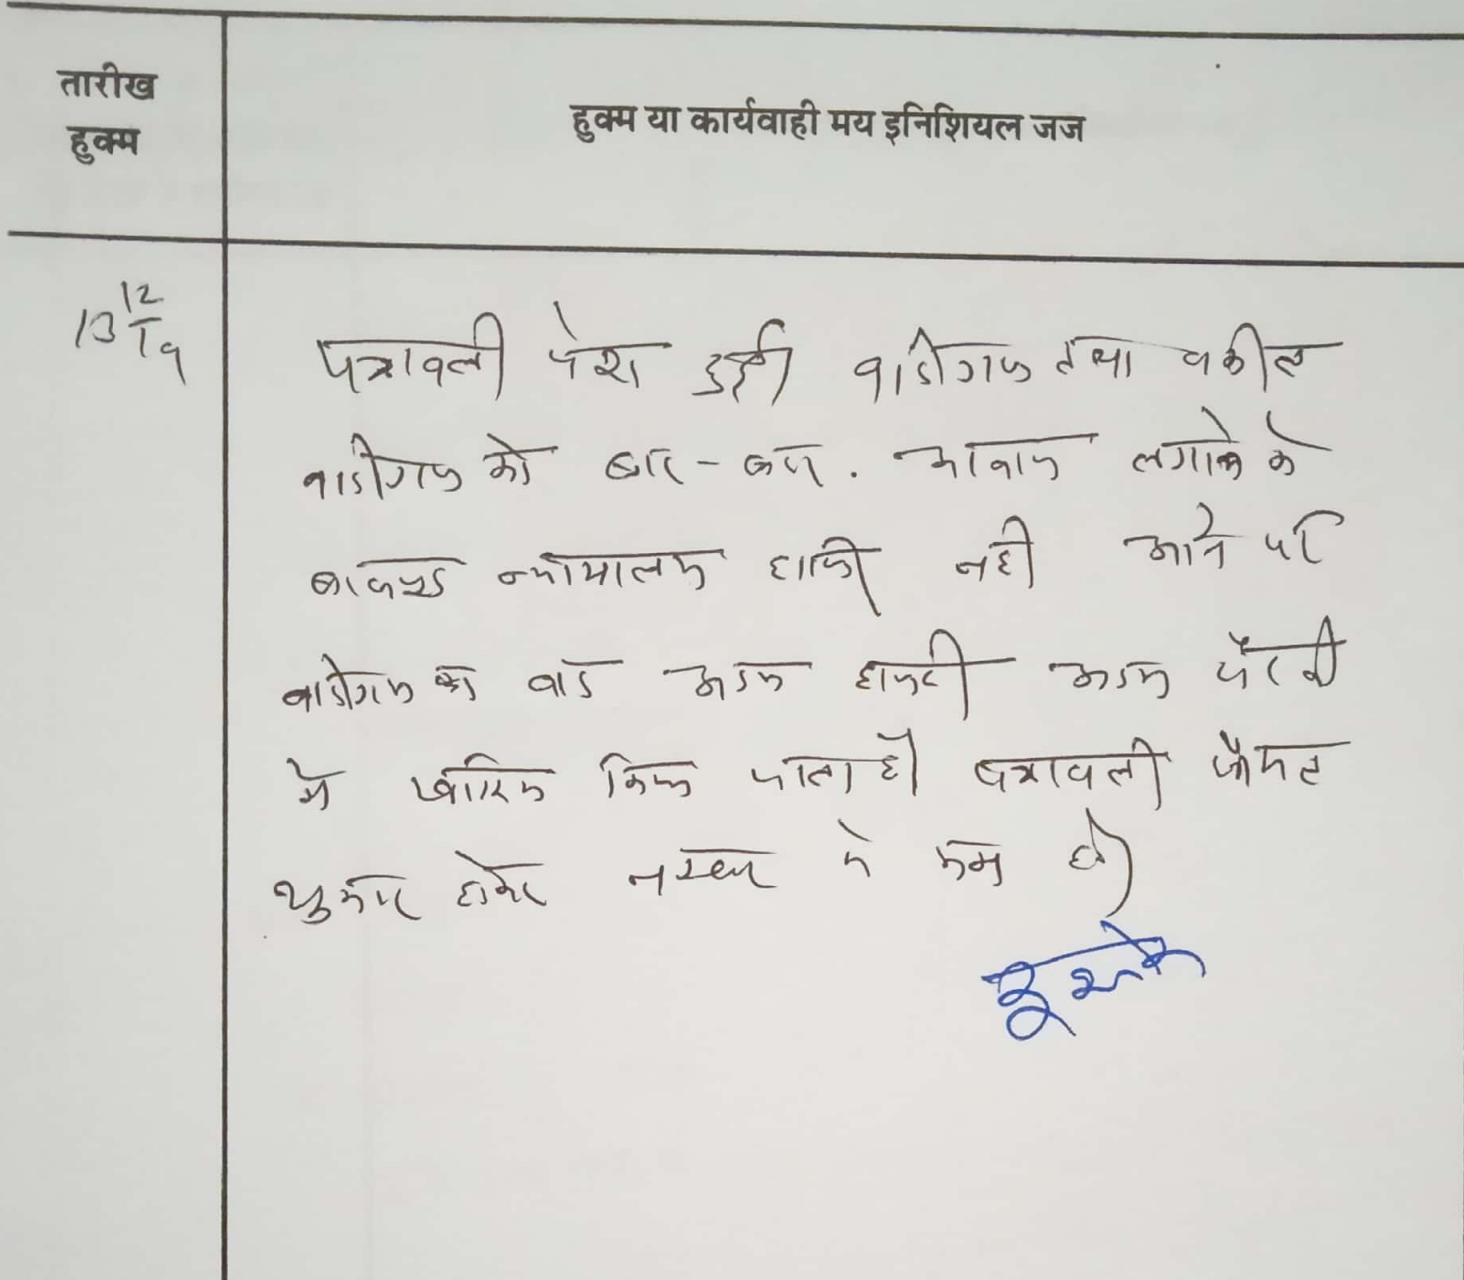 तारीख
हुक्म
हुक्म या कार्यवाही मय इनिशियल जज
13/12/19
पत्रावली पेश हुई। वादीगण तथा वकील
वादीगण को बार-बार आवाज लगाने के
बावजूद न्यायालय हाजिर नही आने पर
वादीगण का वाद अदम हाजरी अदम पैरवी
में खारिज किया जाता है। पत्रावली फैसल
शुमार होकर नम्बर से कम हो।